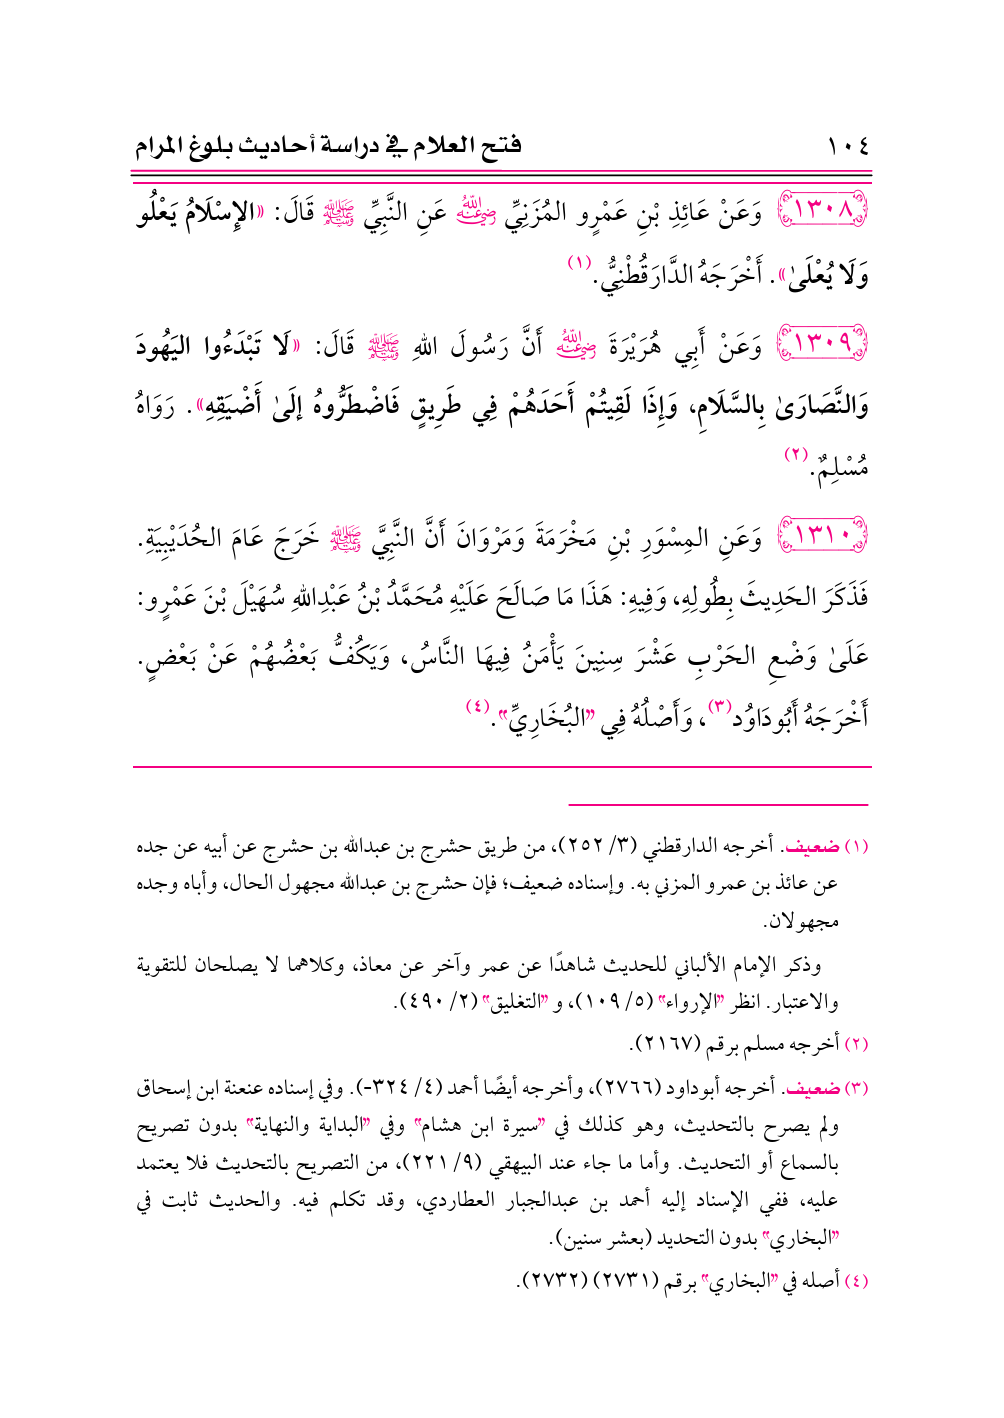 ١٠٤ فتح العلام في دراسة أحاديث بلوغ المرام
١٣٠٨ وَعَنْ عَائِذِ بْنِ عَمْرٍو المُزَنِيِّ رضي الله عنه عَنِ النَّبِيِّ ﷺ قَالَ: «الإِسْلَامُ يَعْلُو
وَلَا يُعْلَىٰ». أَخْرَجَهُ الدَّارَقُطْنِيُّ.(١)
١٣٠٩ وَعَنْ أَبِي هُرَيْرَةَ رضي الله عنه أَنَّ رَسُولَ اللهِ ﷺ قَالَ: «لَا تَبْدَءُوا اليَهُودَ
وَالنَّصَارَىٰ بِالسَّلَامِ، وَإِذَا لَقِيتُمْ أَحَدَهُمْ فِي طَرِيقٍ فَاضْطَرُّوهُ إلَىٰ أَضْيَقِهِ». رَوَاهُ
مُسْلِمٌ.(٢)
١٣١٠ وَعَنِ المِسْوَرِ بْنِ مَخْرَمَةَ وَمَرْوَانَ أَنَّ النَّبِيَّ ﷺ خَرَجَ عَامَ الحُدَيْبِيَةِ.
فَذَكَرَ الحَدِيثَ بِطُولِهِ، وَفِيهِ: هَذَا مَا صَالَحَ عَلَيْهِ مُحَمَّدُ بْنُ عَبْدِاللهِ سُهَيْلَ بْنَ عَمْرٍو:
عَلَىٰ وَضْعِ الحَرْبِ عَشْرَ سِنِينَ يَأْمَنُ فِيهَا النَّاسُ، وَيَكُفُّ بَعْضُهُمْ عَنْ بَعْضٍ.
أَخْرَجَهُ أَبُودَاوُد(٣)، وَأَصْلُهُ فِي "البُخَارِيِّ".(٤)
(١) ضعيف. أخرجه الدارقطني (٣/ ٢٥٢)، من طريق حشرج بن عبدالله بن حشرج عن أبيه عن جده
عن عائذ بن عمرو المزني به. وإسناده ضعيف؛ فإن حشرج بن عبدالله مجهول الحال، وأباه وجده
مجهولان.
وذكر الإمام الألباني للحديث شاهدًا عن عمر وآخر عن معاذ، وكلاهما لا يصلحان للتقوية
والاعتبار. انظر "الإرواء" (٥/ ١٠٩)، و "التغليق" (٢/ ٤٩٠).
(٢) أخرجه مسلم برقم (٢١٦٧).
(٣) ضعيف. أخرجه أبوداود (٢٧٦٦)، وأخرجه أيضًا أحمد (٤/ ٣٢٤-). وفي إسناده عنعنة ابن إسحاق
ولم يصرح بالتحديث، وهو كذلك في "سيرة ابن هشام" وفي "البداية والنهاية" بدون تصريح
بالسماع أو التحديث. وأما ما جاء عند البيهقي (٩/ ٢٢١)، من التصريح بالتحديث فلا يعتمد
عليه، ففي الإسناد إليه أحمد بن عبدالجبار العطاردي، وقد تكلم فيه. والحديث ثابت في
"البخاري" بدون التحديد (بعشر سنين).
(٤) أصله في "البخاري" برقم (٢٧٣١) (٢٧٣٢).